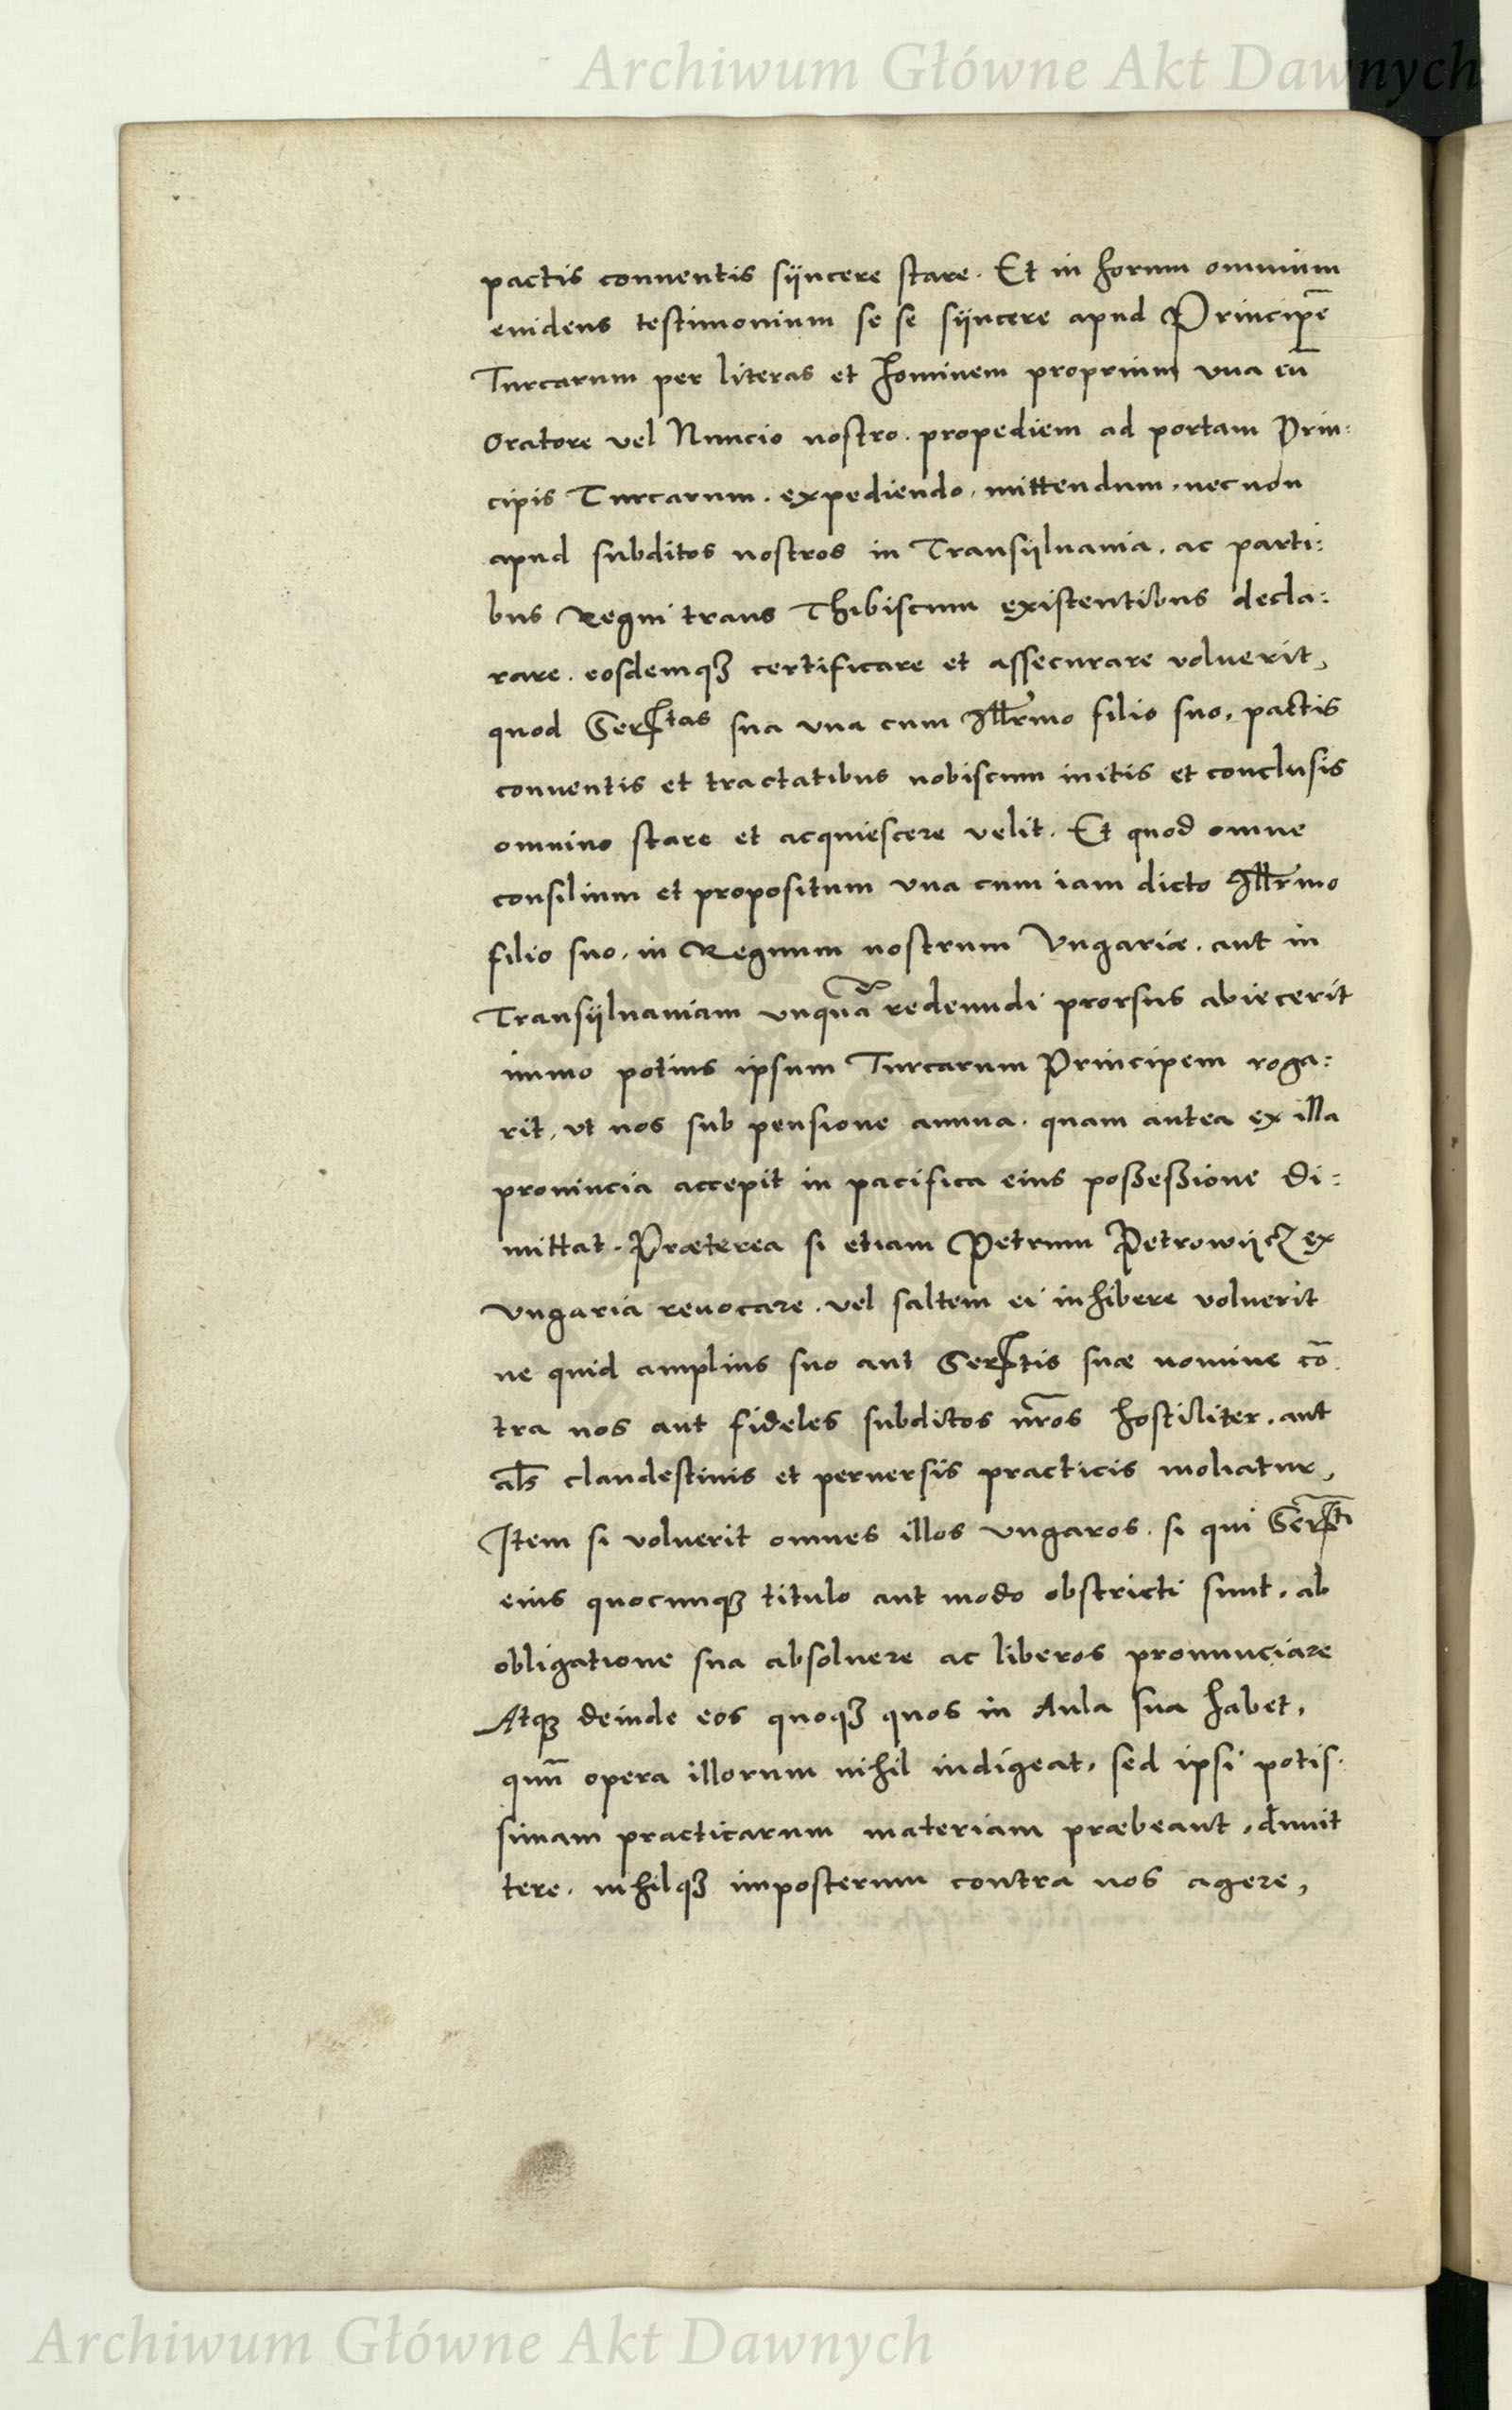 Archiwum Główne Akt Dawnych
pactis conuentis sÿncere stare. Et in horum omnium
euidens testimonium se se sÿncere apud Principē
Turcarum per literas et hominem proprium vna cū
Oratore vel Nuncio nostro. propediem ad portam Prin:
cipis Turcarum. expediendo, mittendum, necnon
apud subditos nostros in Transÿluania. ac parti:
bus Regni trans Thibiscum existentibus decla:
rare. eosdemqꝫ certificare et assecurare voluerit,
quod Serᵗᵃˢ sua vna cum Illr̄mo filio suo, pactis
conuentis et tractatibus nobiscum initis et conclusis
omnino stare et acquiescere velit. Et quod omne
consilium et propositum vna cum iam dicto Illr̄mo
filio suo, in Regnum nostrum Vngariæ. aut in
Transÿluaniam vnquā redeundi prorsus abiecerit
immo potius ipsum Turcarum Principem roga:
rit, vt nos sub pensione annua. quam antea ex illa
prouincia accepit in pacifica eius poßeßione di:
mittat. Præterea si etiam Petrum Petrowÿcz ex
Vngaria reuocare. vel saltem ei inhibere voluerit
ne quid amplius suo aut Serᵗⁱˢ suæ nomine cō
tra nos aut fideles subditos nr̄os hostiliter. aut
als clandestinis et peruersis practicis moliatur,
Item si voluerit omnes illos vngaros. si qui Serᵗⁱ
eius quocunqꝫ titulo aut modo obstricti sunt. ab
obligatione sua absoluere ac liberos pronunciare
Atqꝫ deinde eos quoqꝫ quos in Aula sua habet,
quū opera illorum nihil indigeat, sed ipsi potis.
simam practicarum materiam præbeant, dimit
tere. nihilqꝫ imposterum contra nos agere,
Archiwum Główne Akt Dawnych